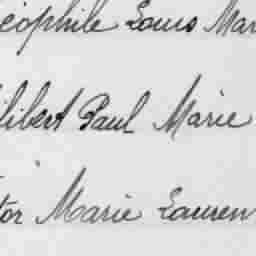 éophile Louis Mar
libert Paul Marie
tor Marie Lauren